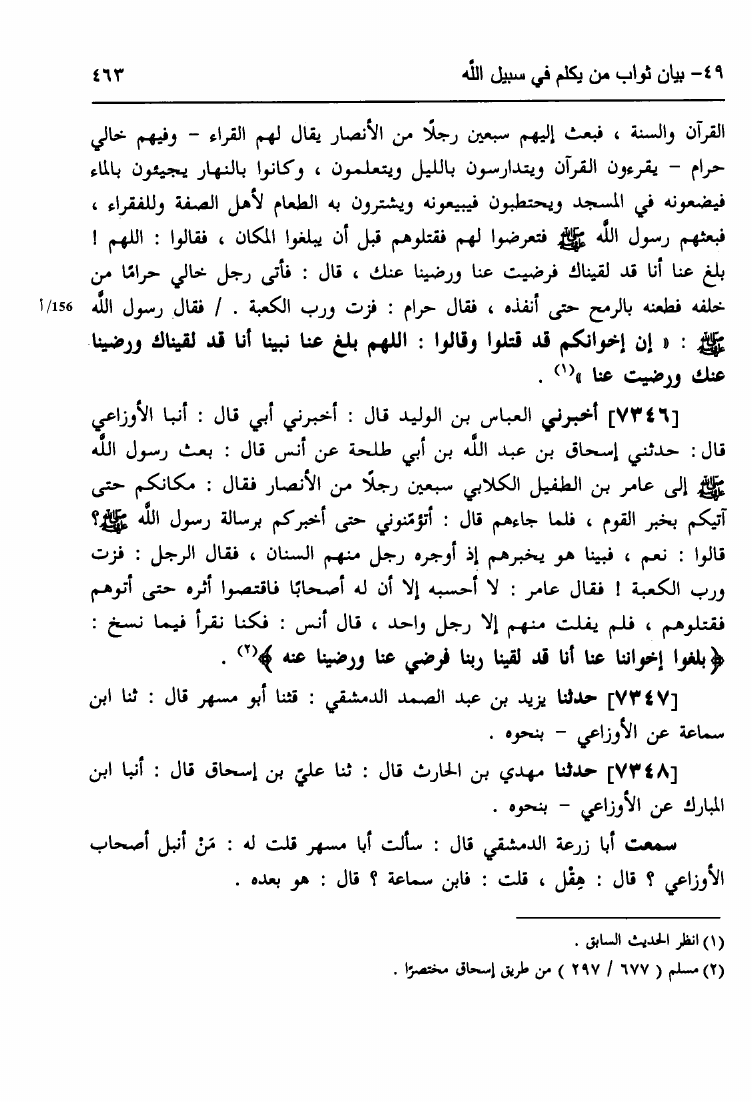 ٤٩- بيان ثواب من يكلم في سبيل اللَّه ٤٦٣
القرآن والسنة ، فبعث إليهم سبعين رجلًا من الأنصار يقال لهم القراء – وفيهم خالي
حرام – يقرءون القرآن ويتدارسون بالليل ويتعلمون ، وكانوا بالنهار يجيئون بالماء
فيضعونه في المسجد ويحتطبون فيبيعونه ويشترون به الطعام لأهل الصفة وللفقراء ،
فبعثهم رسول اللَّه ﷺ فتعرضوا لهم فقتلوهم قبل أن يبلغوا المكان ، فقالوا : اللهم !
بلغ عنا أنا قد لقيناك فرضيت عنا ورضينا عنك ، قال : فأتى رجل خالي حرامًا من
خلفه فطعنه بالرمح حتى أنفذه ، فقال حرام : فزت ورب الكعبة . / فقال رسول اللَّه 156/أ
ﷺ : « إن إخوانكم قد قتلوا وقالوا : اللهم بلغ عنا نبينا أنا قد لقيناك ورضينا
عنك ورضيت عنا »(١) .
[٧٣٤٦] أخبرني العباس بن الوليد قال : أخبرني أبي قال : أنبا الأوزاعي
قال : حدثني إسحاق بن عبد اللَّه بن أبي طلحة عن أنس قال : بعث رسول اللَّه
ﷺ إلى عامر بن الطفيل الكلابي سبعين رجلًا من الأنصار فقال : مكانكم حتى
آتيكم بخبر القوم ، فلما جاءهم قال : أتؤمّنوني حتى أخبركم برسالة رسول اللَّه ﷺ؟
قالوا : نعم ، فبينا هو يخبرهم إذ أوجره رجل منهم السنان ، فقال الرجل : فزت
ورب الكعبة ! فقال عامر : لا أحسبه إلا أن له أصحابًا فاقتصوا أثره حتى أتوهم
فقتلوهم ، فلم يفلت منهم إلا رجل واحد ، قال أنس : فكنا نقرأ فيما نسخ :
﴿بلغوا إخواننا عنا أنا قد لقينا ربنا فرضي عنا ورضينا عنه ﴾(٢) .
[٧٣٤٧] حدثنا يزيد بن عبد الصمد الدمشقي : قثنا أبو مسهر قال : ثنا ابن
سماعة عن الأوزاعي – بنحوه .
[٧٣٤٨] حدثنا مهدي بن الحارث قال : ثنا عليّ بن إسحاق قال : أنبا ابن
المبارك عن الأوزاعي – بنحوه .
سمعت أبا زرعة الدمشقي قال : سألت أبا مسهر قلت له : مَنْ أنبل أصحاب
الأوزاعي ؟ قال : هِقْل ، قلت : فابن سماعة ؟ قال : هو بعده .
(١) انظر الحديث السابق .
(٢) مسلم ( ٦٧٧ / ٢٩٧ ) من طريق إسحاق مختصرًا .